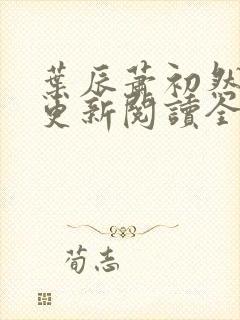 葉辰蕭初然
更新閱讀全
荀志